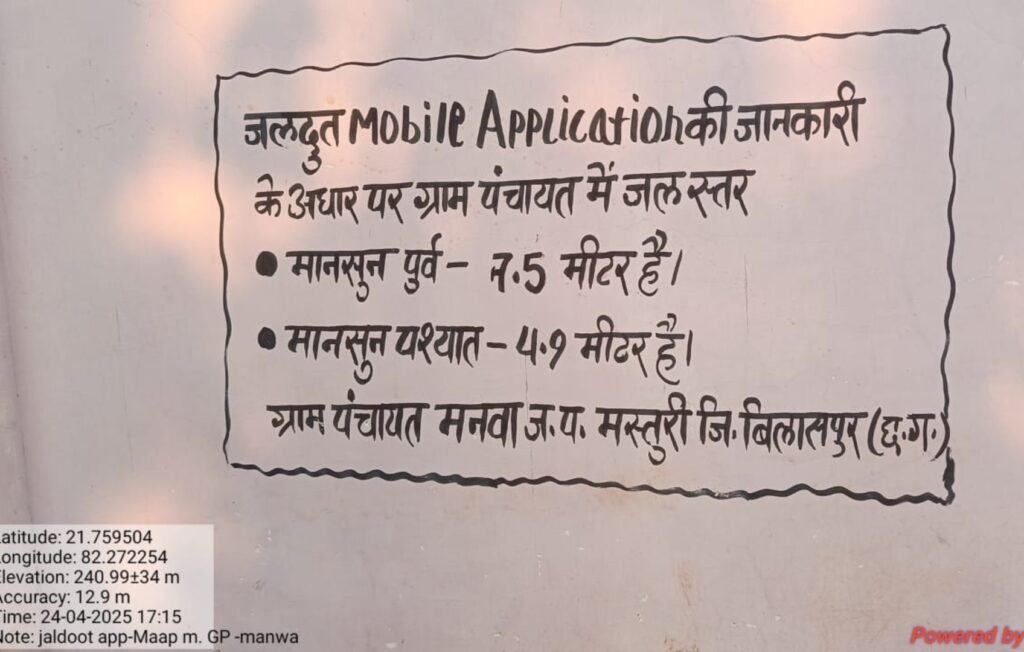 जलदुत Mobile Application की जानकारी
के अधार पर ग्राम पंचायत में जल स्तर
● मानसुन पुर्व – 7.5 मीटर है।
● मानसुन पश्यात – 4.9 मीटर है।
ग्राम पंचायत मनवा ज.प. मस्तुरी जि. बिलासपुर (छ.ग.)
Latitude: 21.759504
Longitude: 82.272254
Elevation: 240.99±34 m
Accuracy: 12.9 m
Time: 24-04-2025 17:15
Note: jaldoot app-Maap m. GP -manwa
Powered by